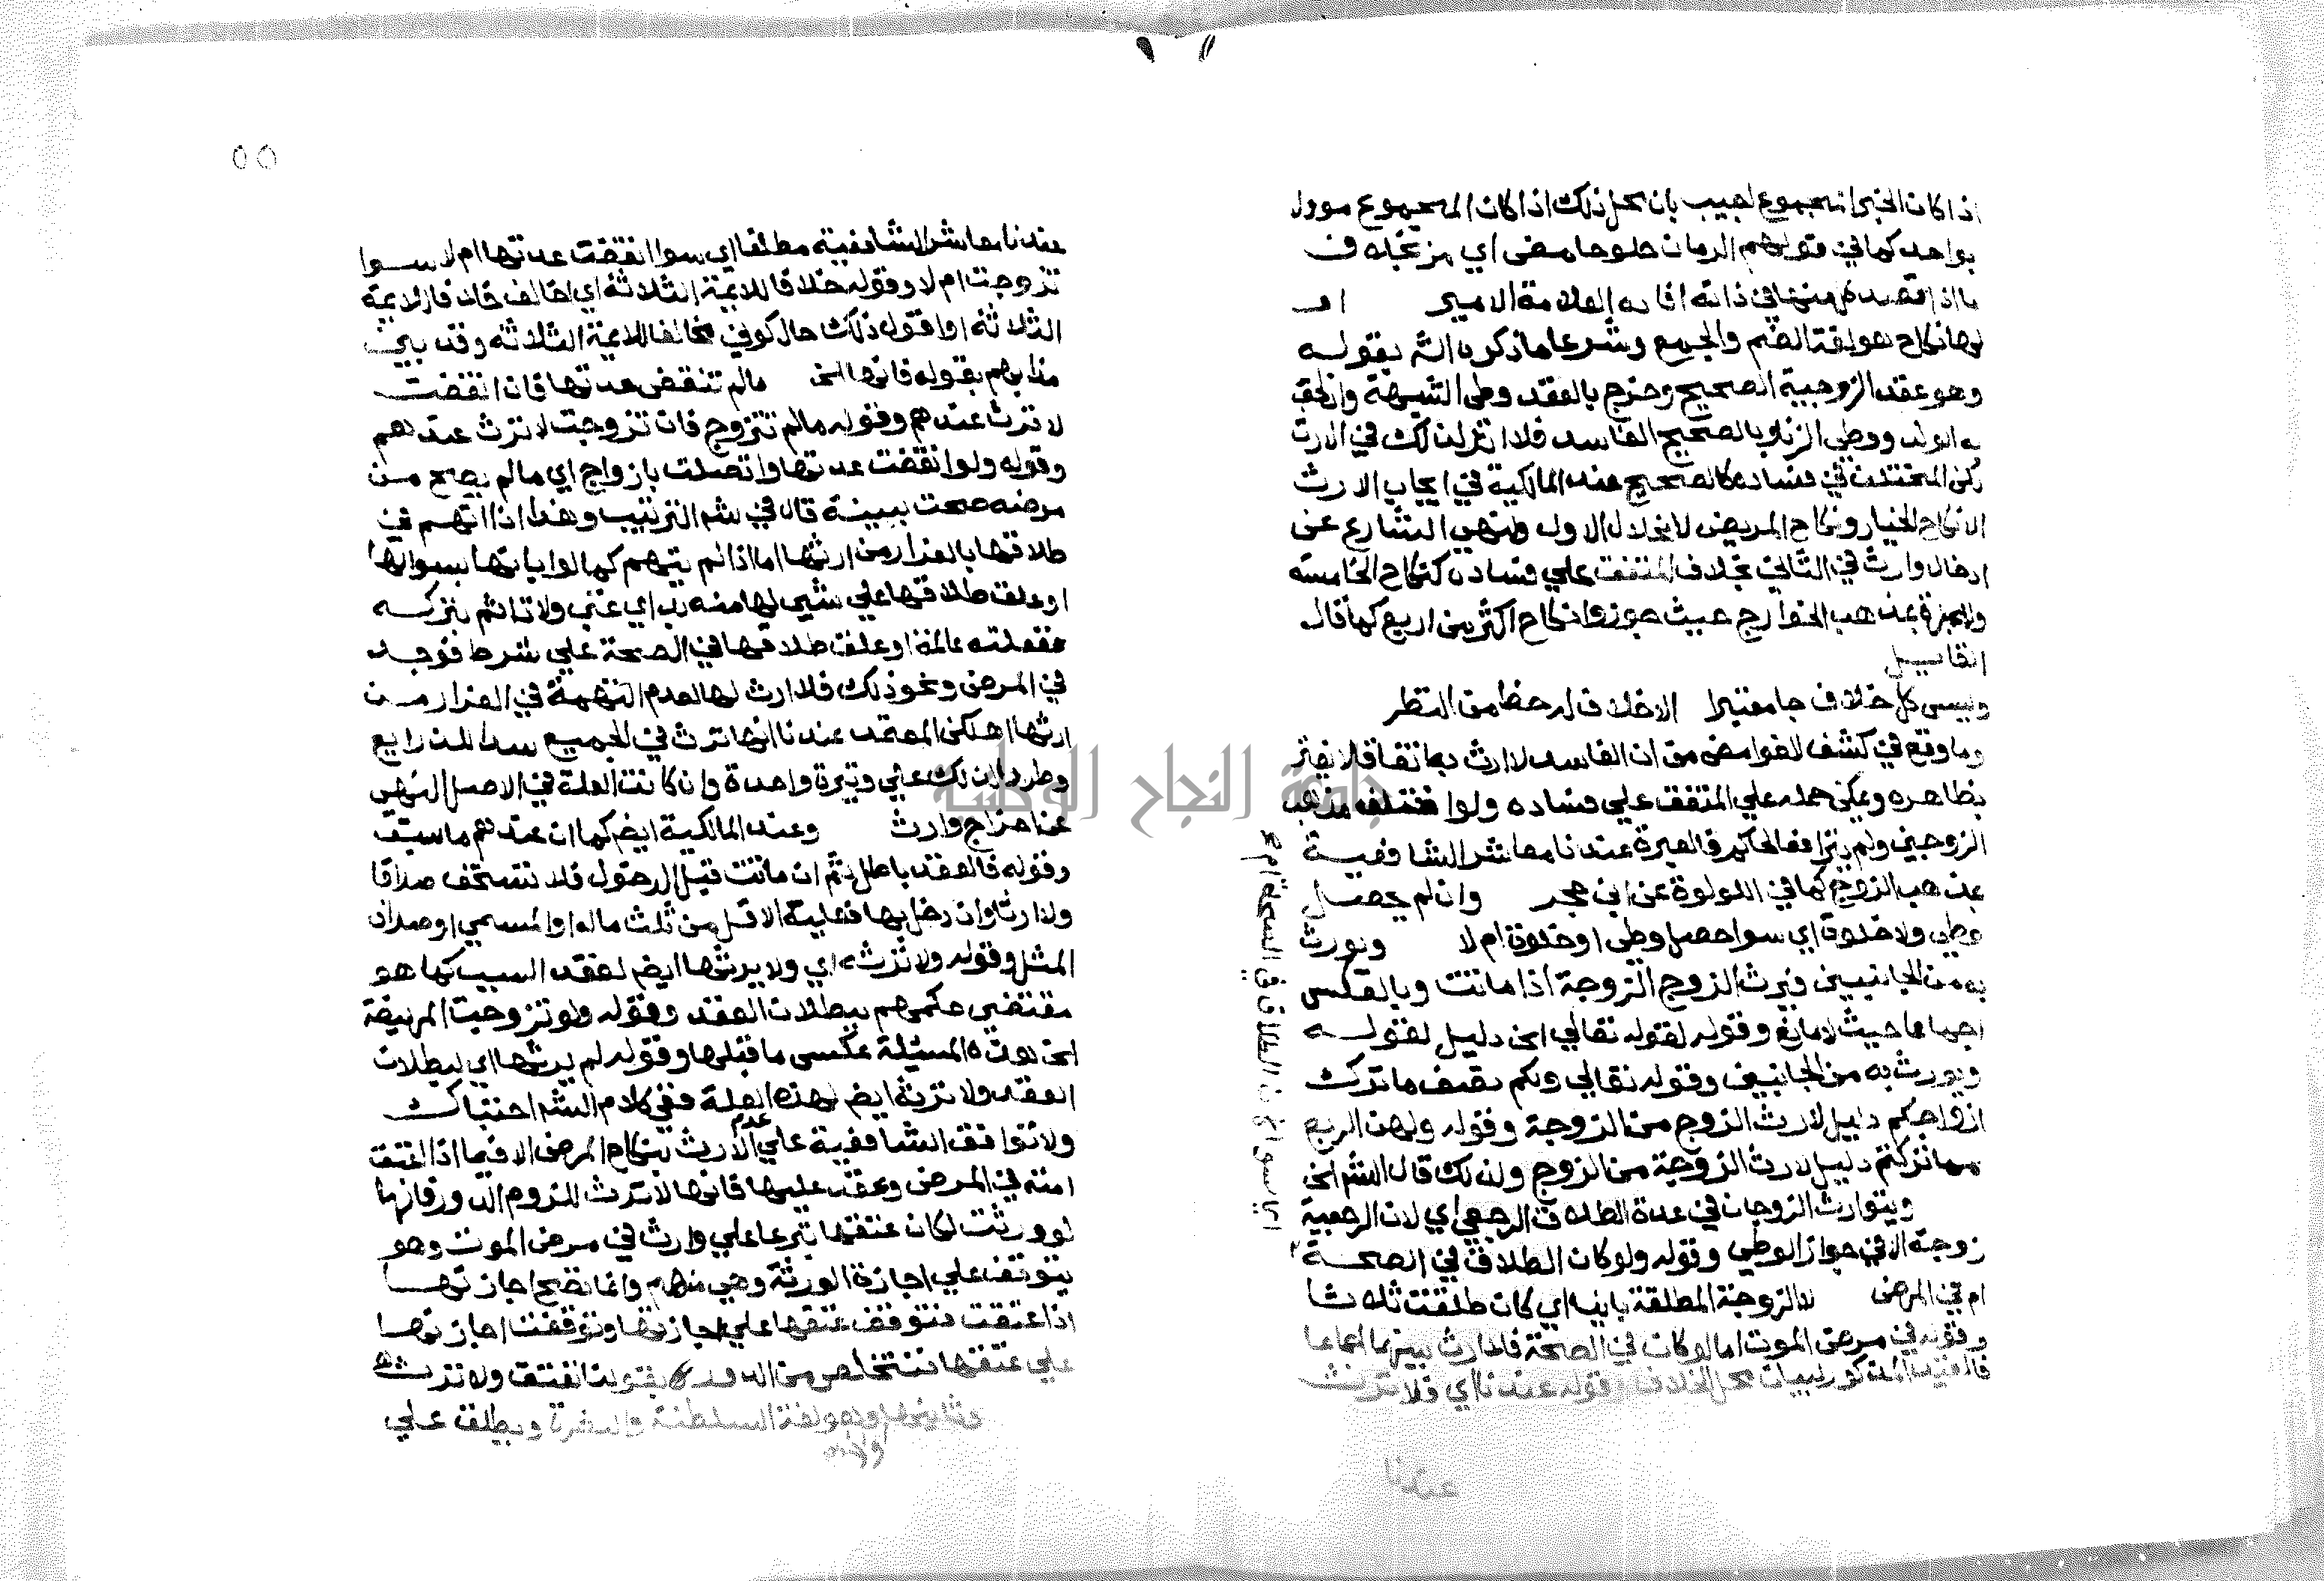 اذا كان الخبر المجموع اجيب بان محل ذلك اذا كان المجموع موولا
بواحد كما في قولهم الرمان حلو حامض اي مز بخلاف
ما اذا قصد كل منهما في ذاته افاده العلامة الامير اهـ
لوها نكاح هو لغة الضم والجمع وشرعا ما ذكره الش بقوله
وهو عقد الزوجية الصحيح وخرج بالعقد وطي الشبهة وان لحق
به الولد ووطي الزنا وبالصحيح الفاسد فلا اثر لذلك في الارث
لكن المختلف في فساده كالصحيح عند المالكية في ايجاب الارث
الا نكاح الخيار ونكاح المريض لانحلال الاول ولنهي الشارع عن
ادخال وارث في الثاني بخلاف المتفق علي فساده كنكاح الخامسة
ولا عبرة بمذهب الخوارج حيث جوزوا نكاح اكثر من اربع كما قال
القايل
وليس كل خلاف جا معتبرا الا خلاف له حظ من النظر
وما وقع في كشف الغوامض من ان الفاسد لا ارث به اتفاقا لا يغتر
بظاهره ويمكن حمله علي المتفق علي فساده ولو اختلف مذهب
الزوجين ولم يترافعا لحاكم فالعبرة عندنا معاشر الشافعية
بمذهب الزوج كما في اللولوة عن ابن حجر وان لم يحصل
وطي ولا خلوة اي سوا حصل وطي او خلوة ام لا ويورث
به من الجانبين فيرث الزوج الزوجة اذا ماتت وبالعكس
اجماعا حيث لا مانع وقوله لقوله تعالي الخ دليل لقوله
ويورث به من الجانبين وقوله تعالي ولكم نصف ما ترك
ازواجكم دليل لارث الزوج من الزوجة وقوله ولهن الربع
مما تركتم دليل لارث الزوجة من الزوج ولذلك قال الشم الخ
ويتوارث الزوجان في عدة الطلاق الرجعي اي لان الرجعية
زوجة الا في جواز الوطي وقوله ولو كان الطلاق في الصحة
ام في المرض لا الزوجة المطلقة باينا اي كان طلقت ثلاثا
وقوله في مرض الموت اما لو كان في الصحة فلا ارث بينهما اجماعا
فالتقييد المذكور لبيان محل الخلاف وقوله عندنا اي فلا ترث
عندنا
اي سوا كان الطلاق في الصحة ام
٥٥
عندنا معاشر الشافعية مطلقا اي سوا انقضت عدتها ام لا سوا
تزوجت ام لا وقوله خلافا للايمة الثلاثة اي اخالف خلافا للايمة
الثلاثة او اقول ذلك حال كوني مخالفا للايمة الثلاثة وقد بين
مذابهم بقوله فانها الخ ما لم تنقض عدتها فان انقضت
لا ترث عندهم وقوله ما لم تتزوج فان تزوجت لا ترث عندهم
وقوله ولو انقضت عدتها واتصلت بازواج اي ما لم يصح من
مرضه صحت ببينة قال في شم الترتيب وهذا اذا اتهم في
طلاقها بالفرار من ارثها اما اذا لم يتهم كما لو ابانها بسوالها
او علق طلاقها علي شي لها منه بد اي غنى ولا تاثم بتركه
ففعلته عالمة او علق طلاقها في الصحة علي شرط فوجد
في المرض ونحو ذلك فلا ارث لها لعدم التهمة في الفرار من
ارثها اهـ لكن المعتمد عندنا انها ترث في الجميع سدا للذرايع
وطردا لذلك علي وتيرة واحدة وان كانت العلة في الاصل النهي
عن اخراج وارث وعند المالكية ايضم كما ان عندهم ما سبق
وقوله فالعقد باطل ثم ان ماتت قبل الدخول فلا تستحق صداقا
ولا ارثا وان دخل بها فعليه الاقل من ثلث ماله او المسمي او صداق
المثل وقوله ولا ترثه اي ولا يرثها ايضم لفقد السبب كما هو
مقتضي حكمهم ببطلان العقد وقوله ولو تزوجت المريضة
الخ هذه المسئلة عكس ما قبلها وقوله لم يرثها اي لبطلان
العقد ولا ترثه ايضم لهذه العلة ففي كلام الشم احتباك
ولا توافق الشافعية علي عدم الارث بنكاح المرض الا فيما اذا اعتق
امته في المرض وعقد عليها فانها لا ترث للزوم الدور فانها
لو ورثت لكان عتقها تبرعا علي وارث في مرض الموت وهو
يتوقف علي اجازة الورثة وهي منهم وانما تصح اجازتها
اذا عتقت فتوقف عتقها علي اجازتها وتوقفت اجازتها
علي عتقها فنتخلص من الدور بقولنا تعتق ولا ترث اهـ
وثانيها ولا وهو لغة السلطنة والنصرة ويطلق علي
ولاء
جامعة النجاح الوطنية